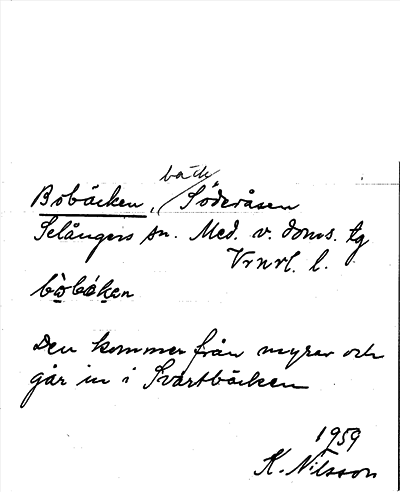 bäck
Bobäcken, Söderåsen
Selångers sn. Med. v. doms. tg
Vrnrl. l.
bo̱bákan
Den kommer från myrar och
går in i Svartbäcken
1959
K. Nilsson